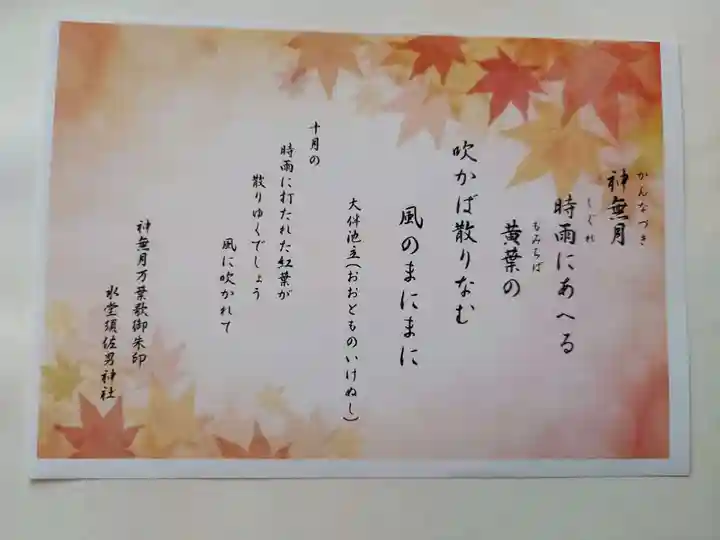 神無月
かんなづき
時雨にあへる
しぐれ
黄葉の
もみちば
吹かば散りなむ
風のまにまに
大伴池主(おおとものいけぬし)
十月の
時雨に打たれた紅葉が
散りゆくでしょう
風に吹かれて
神無月万葉歌御朱印
水堂須佐男神社